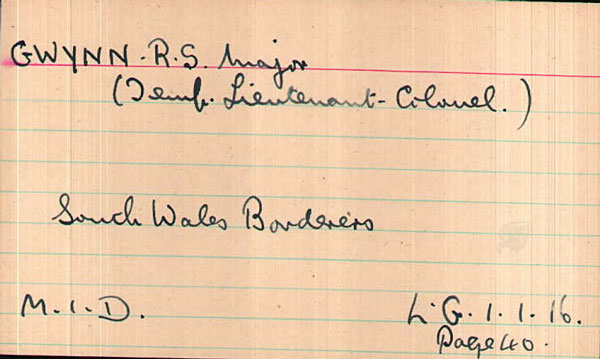 GWYNN. R.S. Major
(Temp. Lieutenant-Colonel.)
South Wales Borderers
M.I.D.
L.G. 1.1.16.
Page 40.